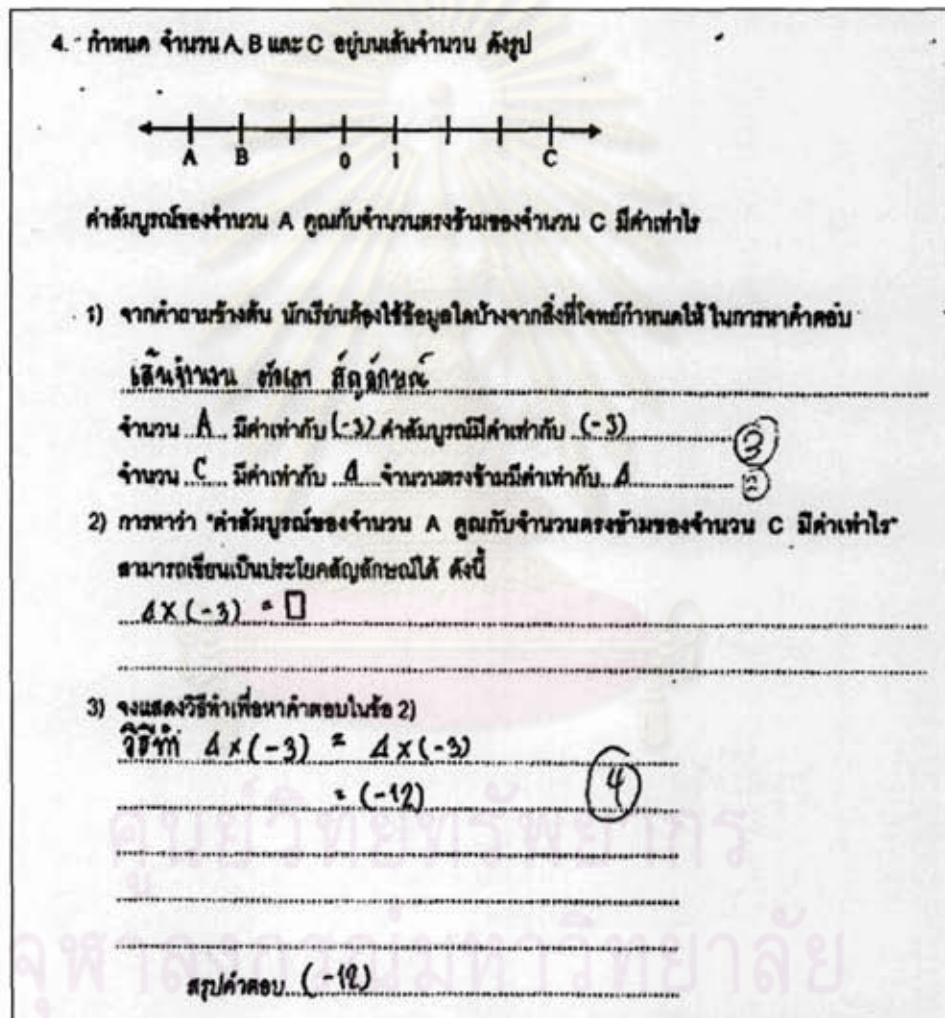 4. กำหนด จำนวน A, B และ C อยู่บนเส้นจำนวน ดังรูป
A B 0 1 C
ค่าสัมบูรณ์ของจำนวน A คูณกับจำนวนตรงข้ามของจำนวน C มีค่าเท่าไร
1) จากคำถามข้างต้น นักเรียนต้องใช้ข้อมูลใดบ้างจากสิ่งที่โจทย์กำหนดให้ ในการหาคำตอบ
เส้นจำนวน ตัวเลข สัญลักษณ์
จำนวน A มีค่าเท่ากับ (-3) ค่าสัมบูรณ์มีค่าเท่ากับ (-3) 3
จำนวน C มีค่าเท่ากับ 4 จำนวนตรงข้ามมีค่าเท่ากับ 4
2) การหาว่า "ค่าสัมบูรณ์ของจำนวน A คูณกับจำนวนตรงข้ามของจำนวน C มีค่าเท่าไร"
สามารถเขียนเป็นประโยคสัญลักษณ์ได้ ดังนี้
4 x (-3) = □
3) จงแสดงวิธีทำเพื่อหาคำตอบในข้อ 2)
วิธีทำ 4 x (-3) = 4 x (-3)
= (-12) 4
สรุปคำตอบ (-12)
ศูนย์วิทยทรัพยากร
จุฬาลงกรณ์มหาวิทยาลัย